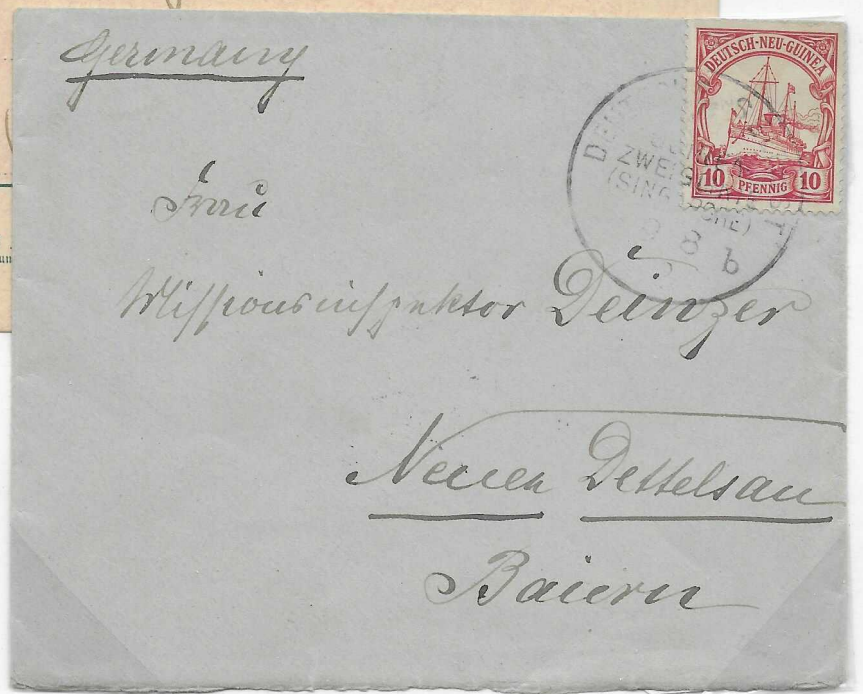 Germany
DEUTSCH-NEU-GUINEA
10 PFENNIG 10
ZWEIGLINIE
(SINGAPORE)
8 b
Frau
Missionsinspektor Deinzer
Neuen Dettelsau
Baiern